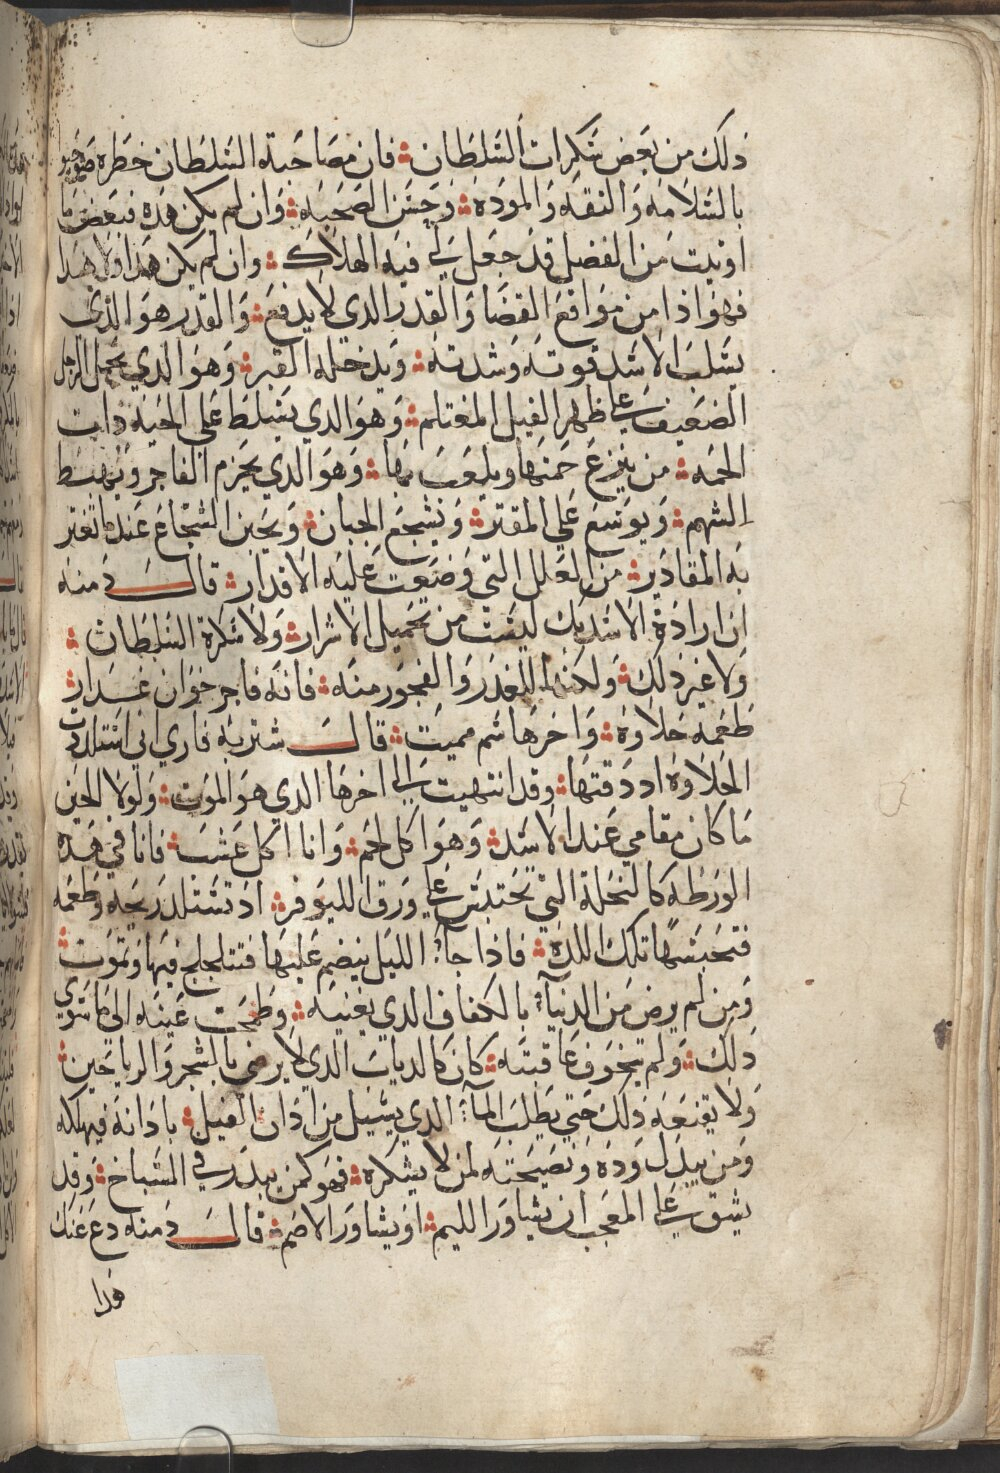 ذلك من بعض سكرات السلطان فان مصاحبة السلطان خطره
بالسلامه والثقه والموده وحسن الصحبه وان لم يكن هذه فبعض ما
اوتيت من الفضل قد جعل لي فيه الهلاك وان لم يكن هذا ولا هذا
فهو اذا من مواقع القضا والقدر الدي لا يدفع والقدر هو الذي
يسلب الاسد قوته وشدته ويدخله القبر وهو الدي يحمل الرجل
الضعيف على ظهر الفيل المغتلم وهو الدي يسلط على الحيه دات
الحمه من ينزع حمتها ويلعب بها وهو الدي يحزم الفاجر ويثبط
الشهم ويوسع على المقتر ويشجع الجبان ويجبن الشجاع عند ما تعتر
به المقادير من العلل التي وضعت عليه الاقدار قال دمنه
ان ارادة الاسد بك ليست من تحميل الاشرار ولا سكرة السلطان
ولا غير ذلك ولكنها الغدر والفجور منه فانه فاجر خوان غدار
طعمه حلاوة واخرها سم مميت قال شتربه فاري اني استلددت
الحلاوه اد دقتها وقد انتهيت الى اخرها الدي هو الموت ولولا الحين
ما كان مقامي عند الاسد وهو اكل لحم وانا اكل عشب فانا في هذه
الورطه كالنحلة التي تحتبس على ورق اللينوفر اد تستلد ريحه وطعمه
فتحبسها تلك اللده فاذا جآء الليل ينضم عليها فتتلجلج فيها وتموت
ومن لم يرض من الدنيآء بالكفاف الدي يغنيه وطمحت عينه الى ما سوي
ذلك ولم يتخوف عاقبته كان كالدباب الدي لا يرضي بالشجر والرياحين
ولا يقنعه ذلك حتى يطلب المآء الدي يسيل من ادان الفيل بادانه فيهلكه
ومن يبدل وده ونصيحته لمن لا يشكره فهو كمن يبدر في السباخ وقد
يشق على المعجب ان يشاور اللئيم او يشاور الاصم قال دمنه دع عنك
هذا